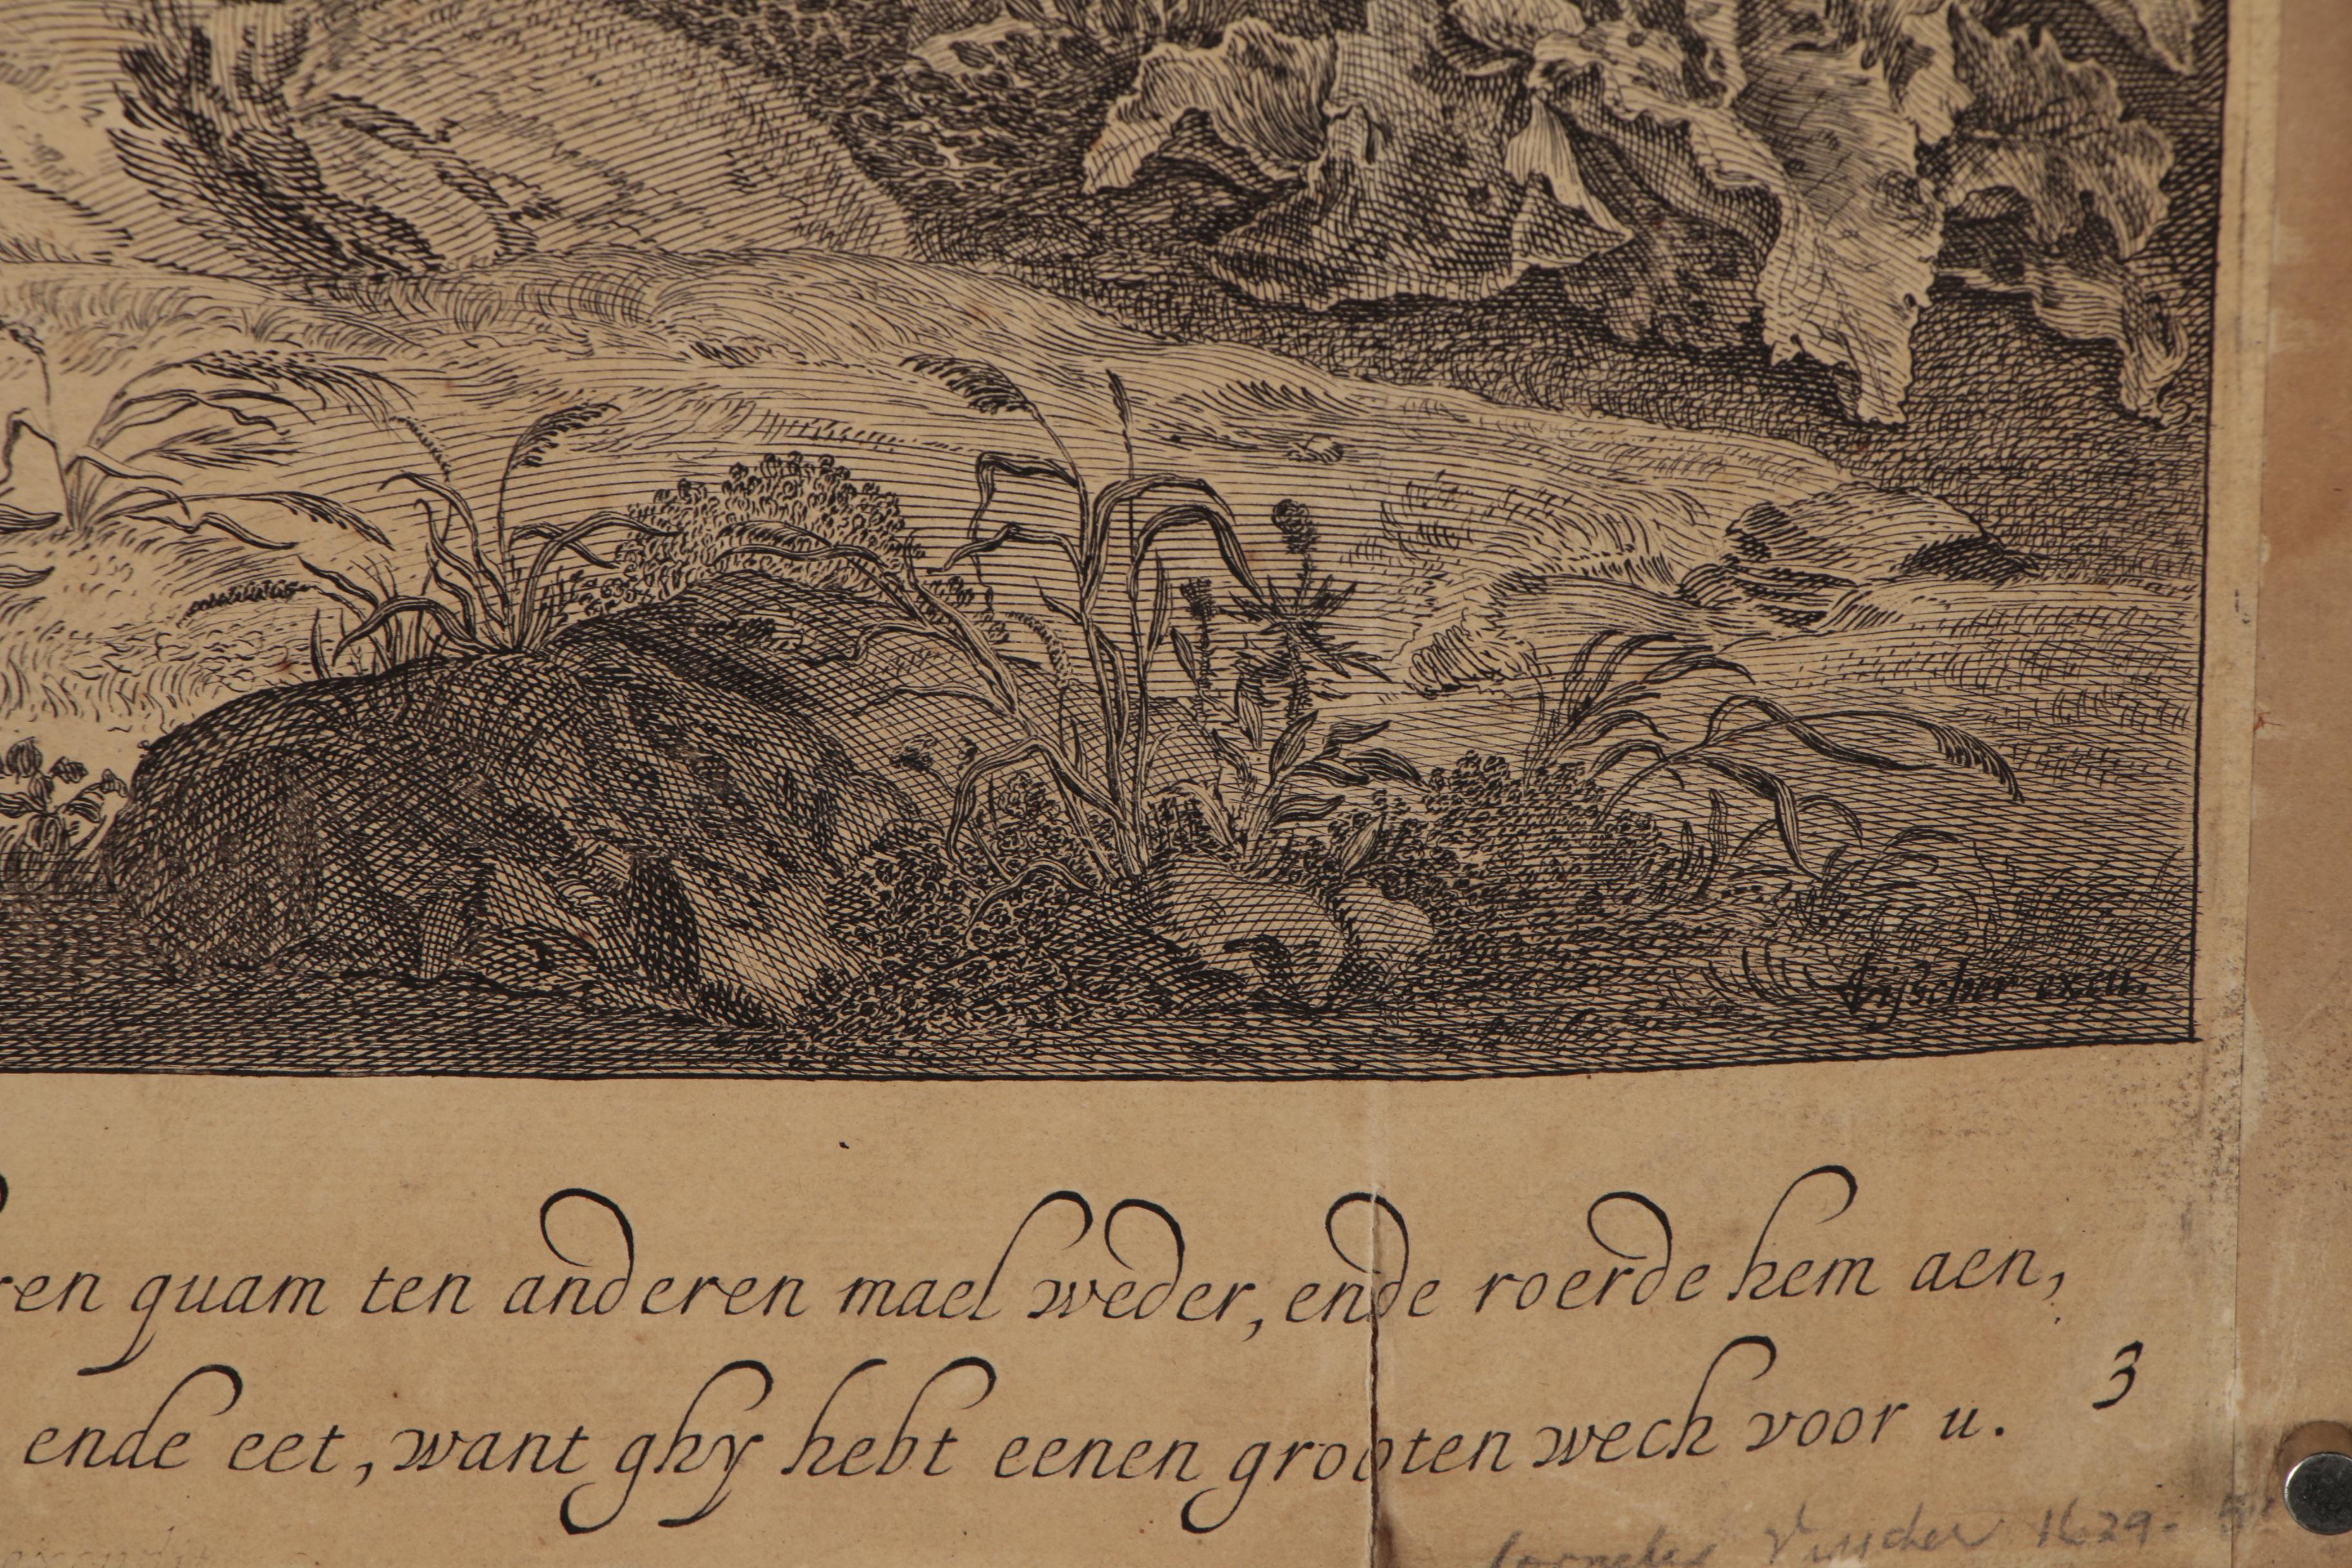 Visscher excu.
ren quam ten anderen mael weder, ende roerde hem aen,
ende eet, want ghy hebt eenen grooten wech voor u.
3
Cornelis Visscher 1629-